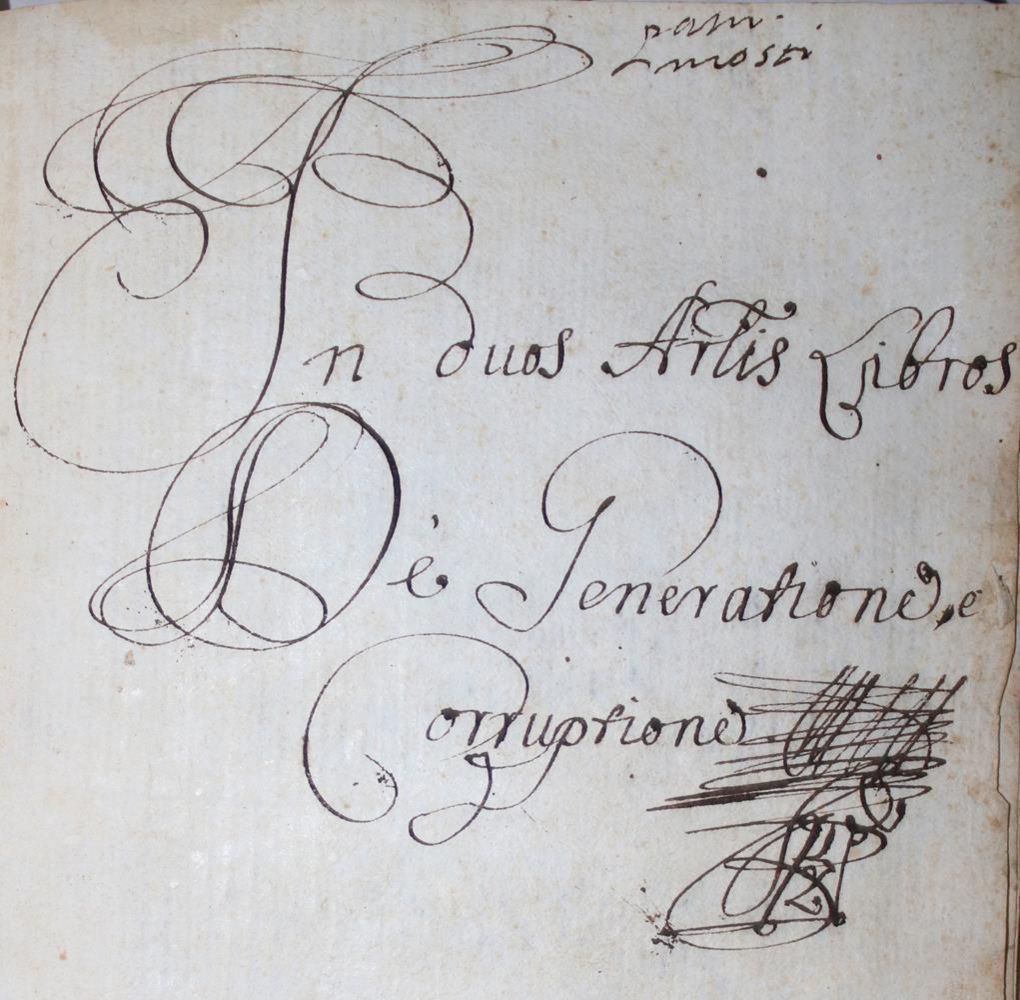 In duos Artlis Libros
De Generatione, e
Corruptione